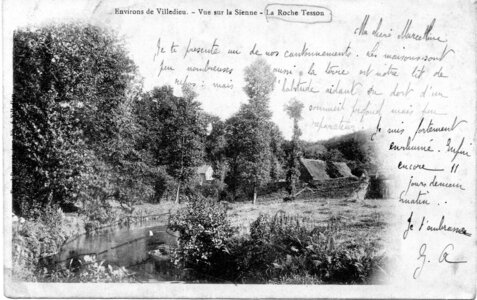 Environs de Villedieu. - Vue sur la Sienne - La Roche Tesson
Ma chère Marcelline
Je te presente un de nos cantonnements. Les maisons sont
peu nombreuses aussi la terre est notre lit de
repos ; mais l'habitude aidant on dort d'un
sommeil profond mais peu
reparateur
Je suis fortement
enrhumé. Enfin
encore 11
jours demain
matin.
Je t'embrasse
G. A